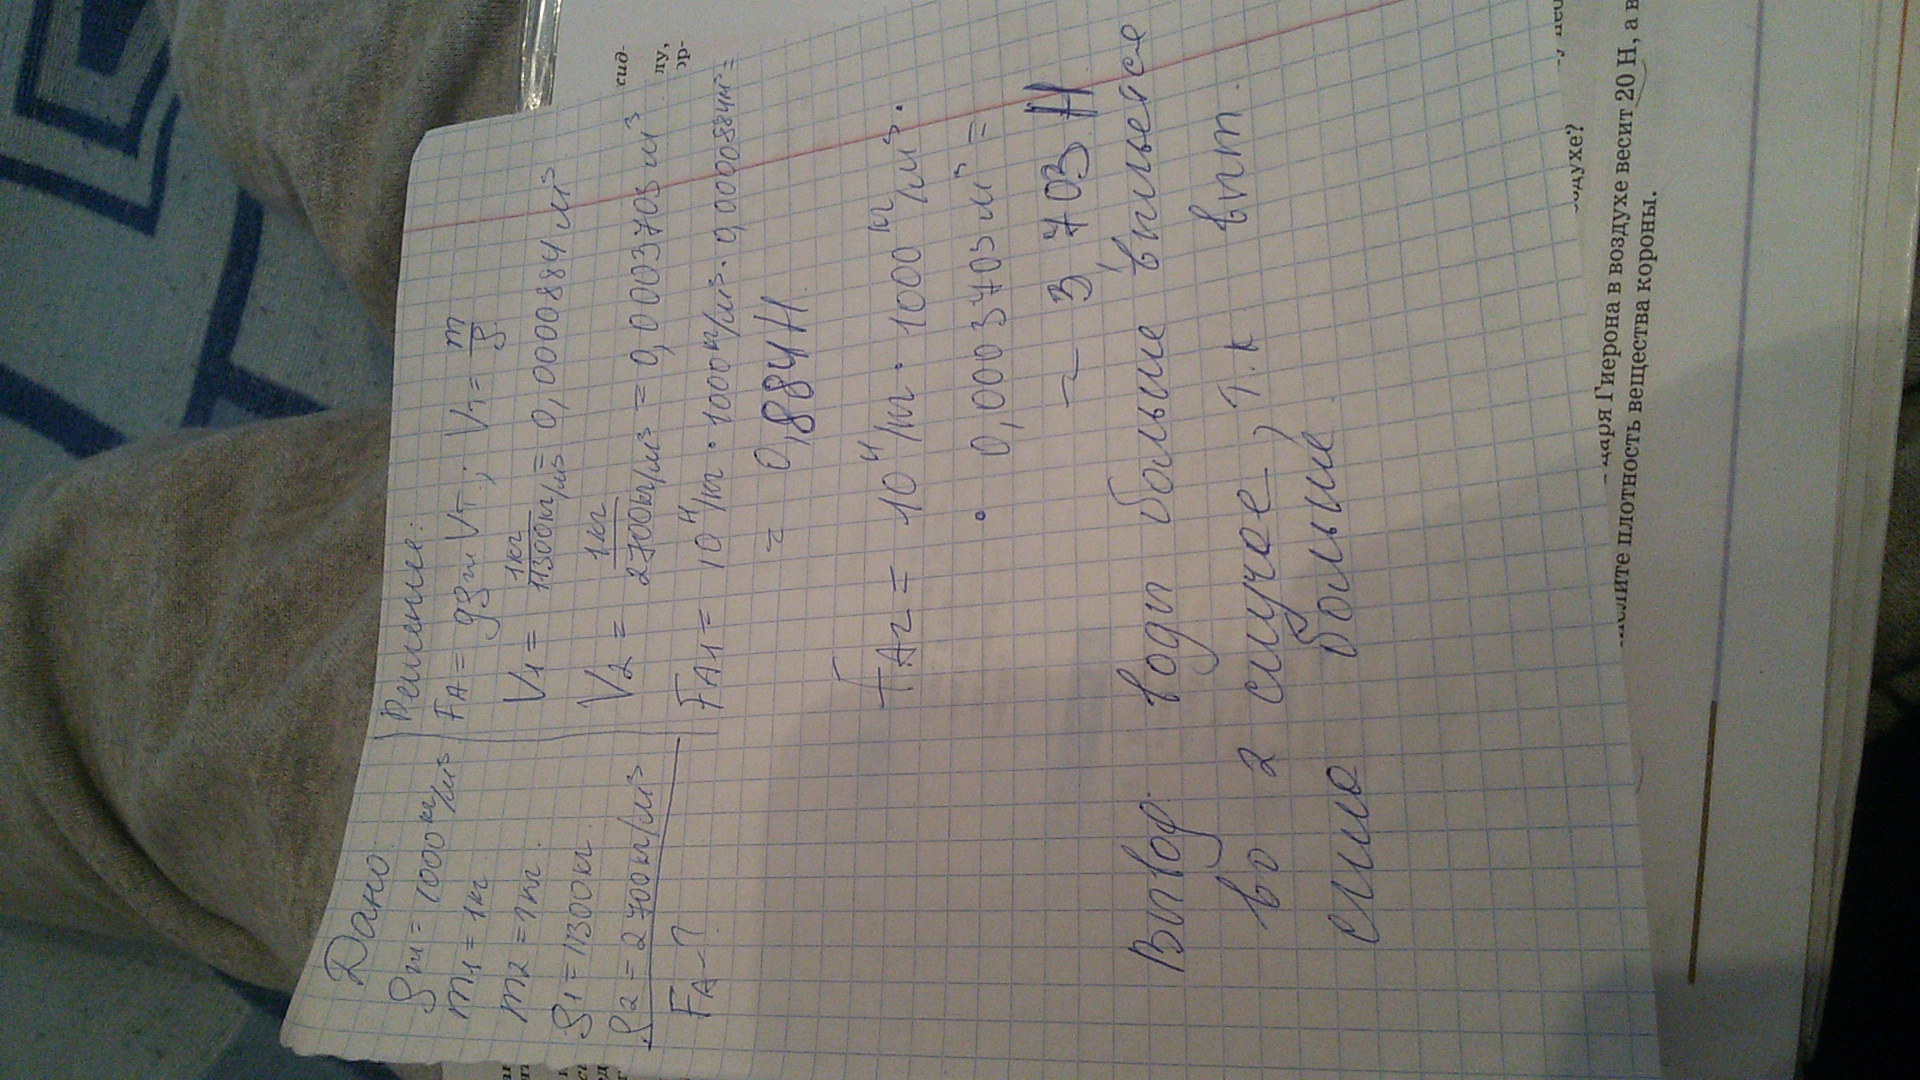 Дано
ρж = 1000 кг/м³
m1 = 1кг
m2 = 1кг.
ρ1 = 11300кг.
ρ2 = 2700кг/м³
FA - ?
Решение:
FA = gρж Vт ; Vт = m/ρ
V1 = 1кг/11300кг/м³ = 0,0000884 м³
V2 = 1кг/2700кг/м³ = 0,0003703 м³
FA1 = 10 Н/кг · 1000 кг/м³ · 0,0000884м³ =
= 0,884Н
FA2 = 10 Н/кг · 1000 кг/м³ ·
· 0,0003703 м³ =
~ 3 703 Н
Вывод: воды больше выльется
во 2 случае, т.к выт.
сила больше
сид-
лу,
ор-
воздухе?
царя Гиерона в воздухе весит 20 Н, а в
числите плотность вещества короны.